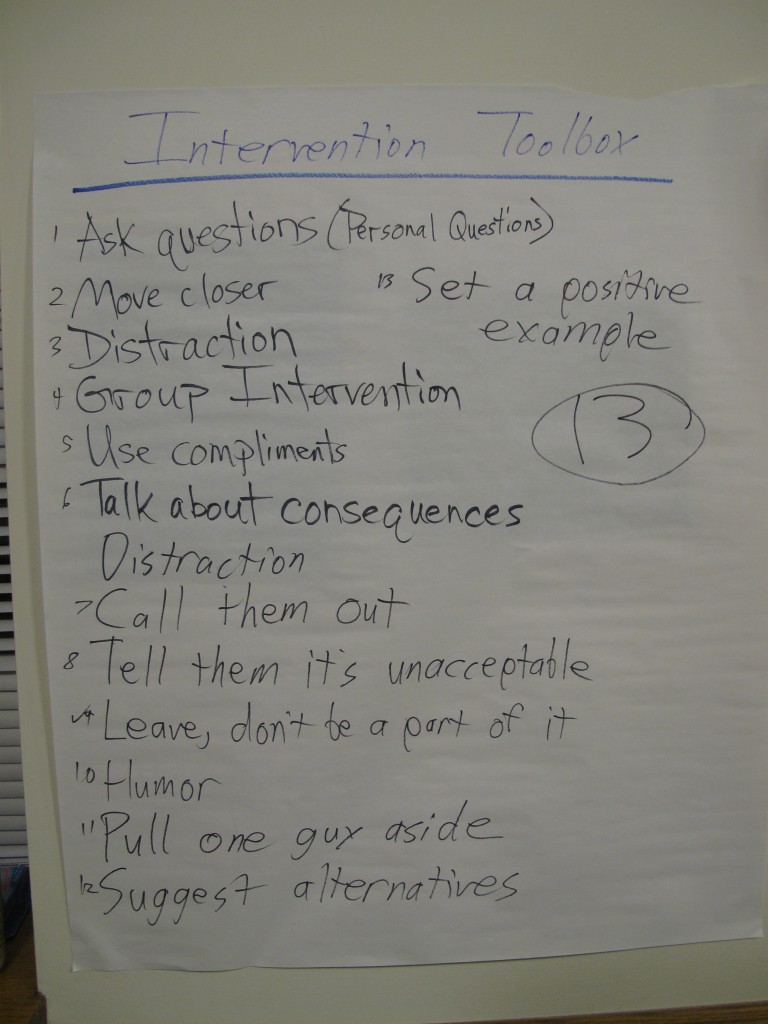 Intervention Toolbox
1 Ask questions (Personal Questions)
2 Move closer
13 Set a positive
example
3 Distraction
4 Group Intervention
13
5 Use compliments
6 Talk about consequences
Distraction
7 Call them out
8 Tell them it's unacceptable
9 Leave, don't be a part of it
10 Humor
11 Pull one guy aside
12 Suggest alternatives